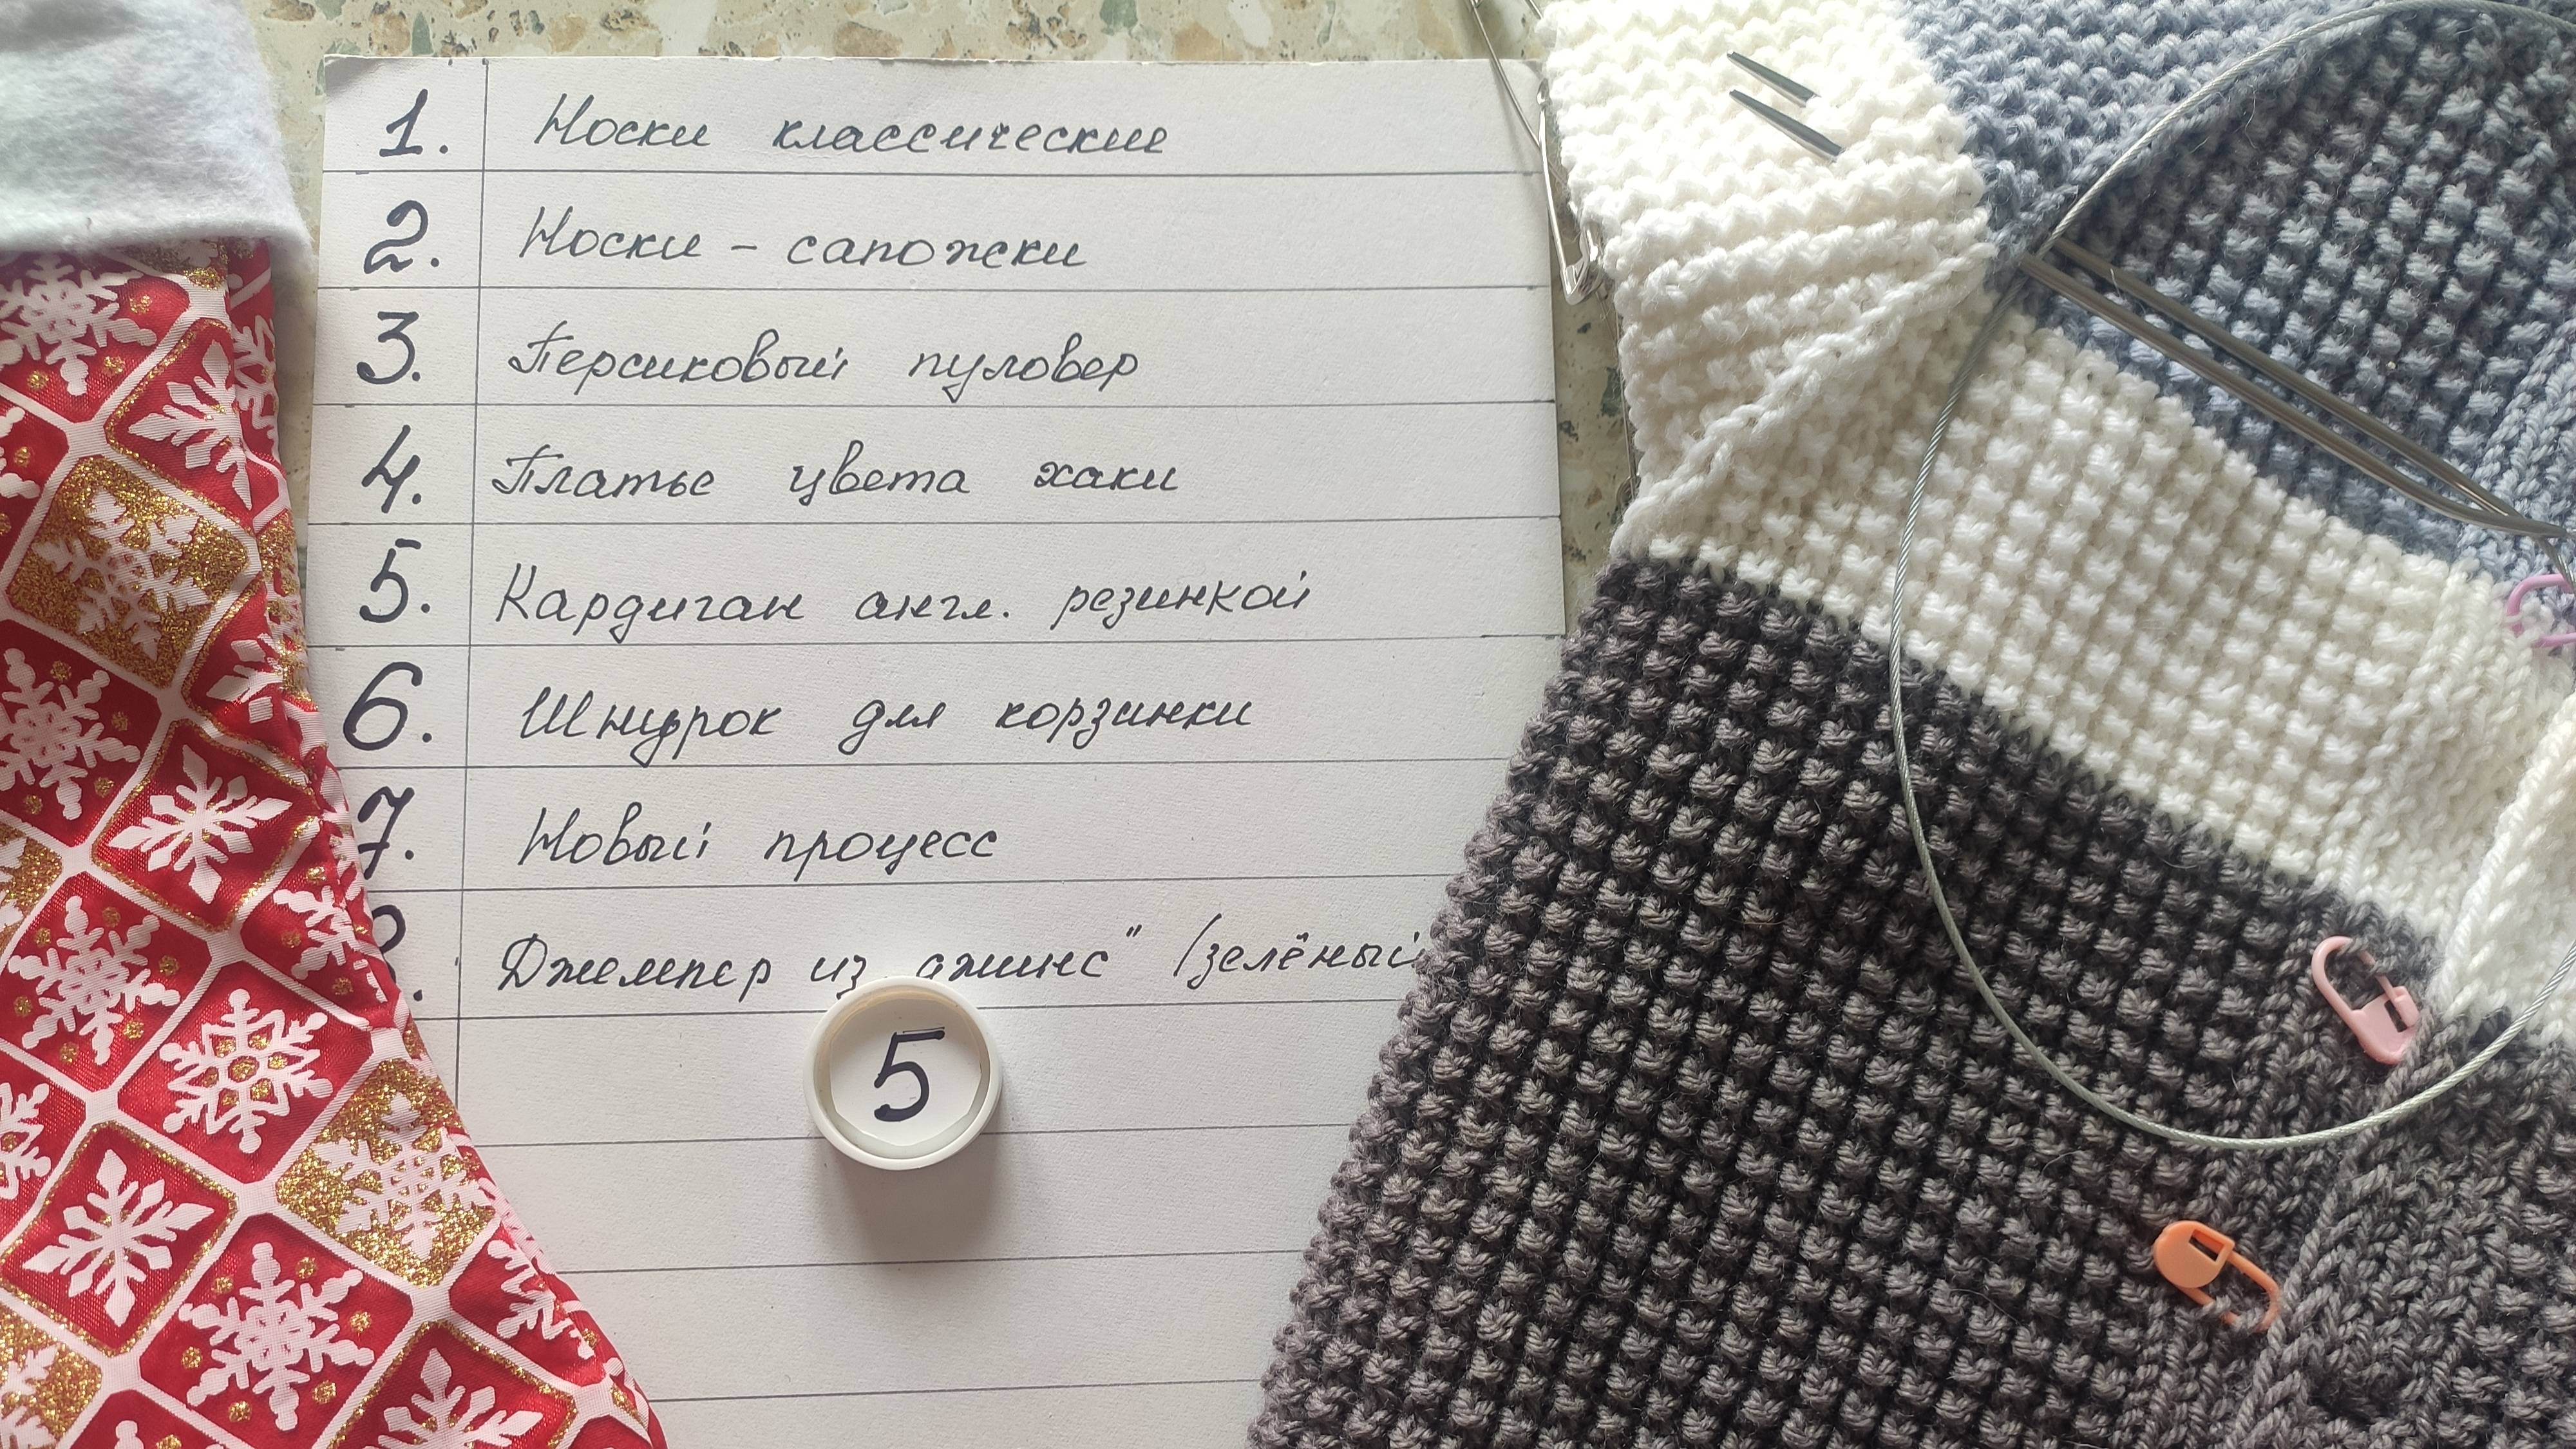 1. Носки классические
2. Носки - сапожки
3. Персиковый пуловер
4. Платье цвета хаки
5. Кардиган англ. резинкой
6. Шнурок для корзинки
7. Новый процесс
Джемпер из джинс" (зелёный
5